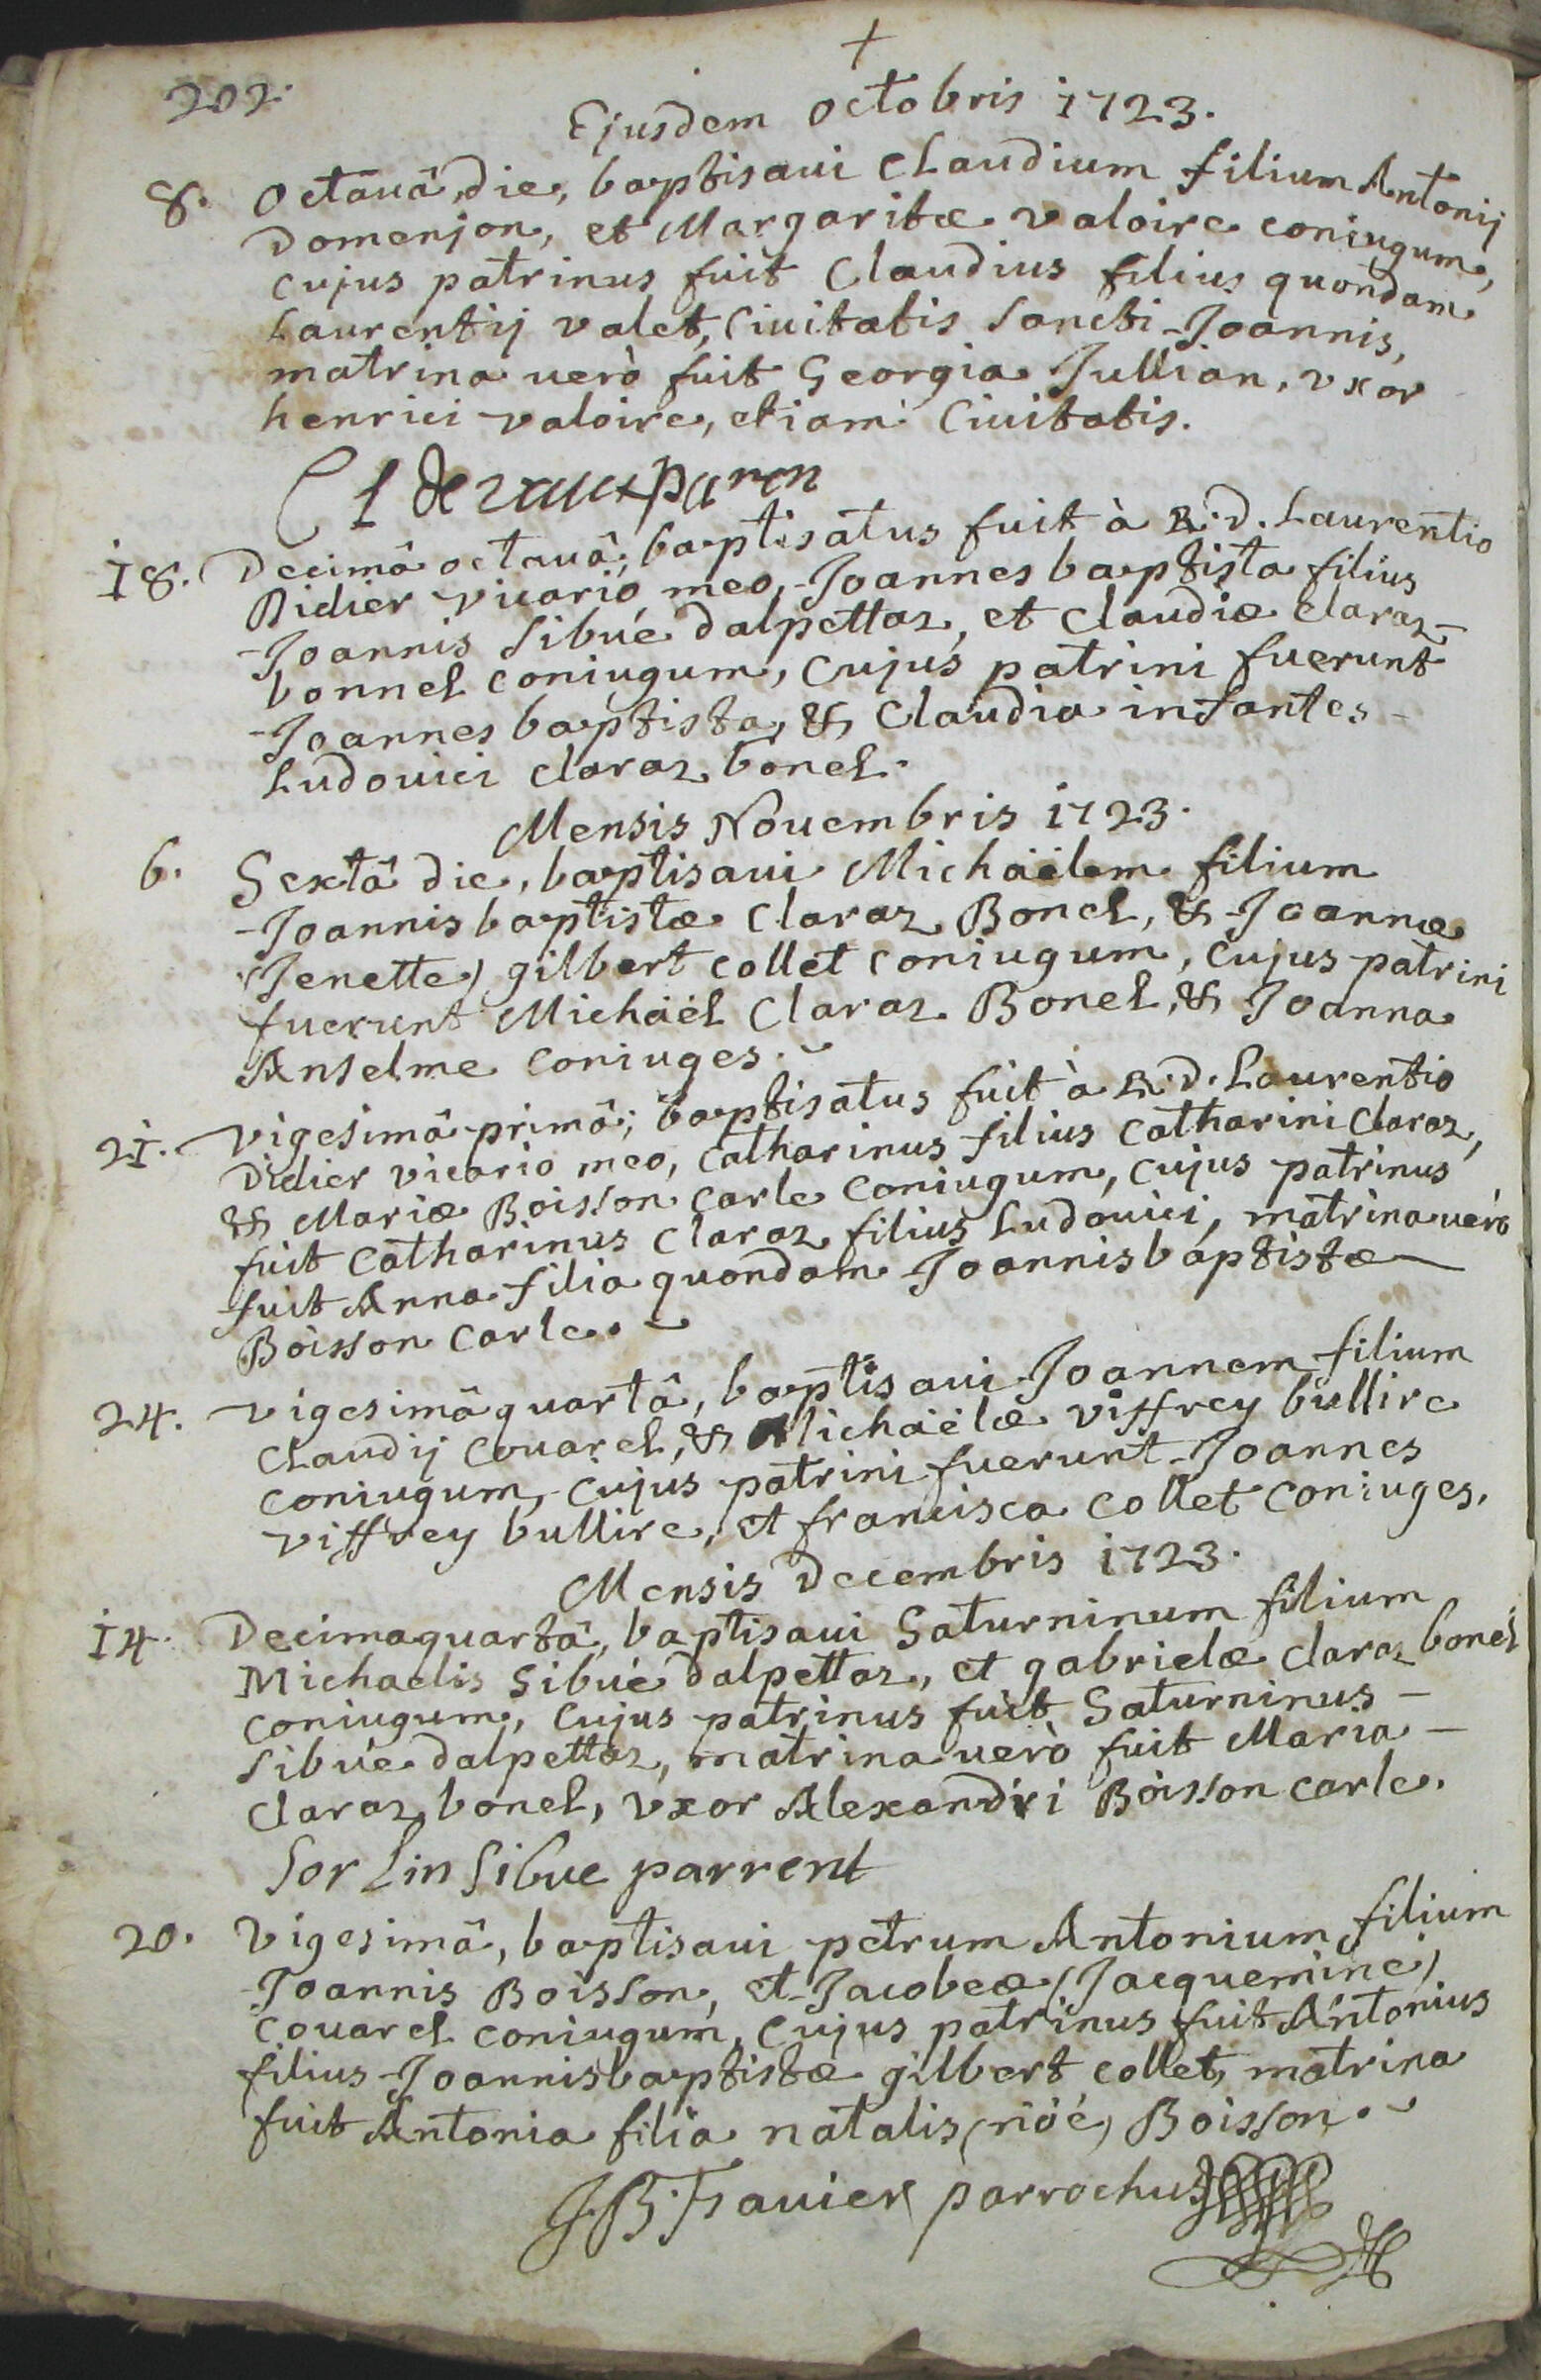 +
202.
Ejusdem octobris 1723.
8. Octauâ die, baptisaui Claudium filium Antonij
Domenjon, et Margaritæ valoire coniugum,
cujus patrinus fuit Claudius filius quondam
Laurentij valet, Ciuitatis Sancti Joannis,
matrina uerò fuit Georgia Jullian, vxor
henrici valoire, etiam Ciuitatis.
18. Decimâ octauâ, baptisatus fuit à R.d. Laurentio
Didier vicario meo, Joannes baptista filius
Joannis Sibué dalpettaz, et Claudiæ Claraz-
bonnel coniugum, cujus patrini fuerunt
Joannes baptista, & Claudia infantes-
Ludouici Claraz bonel.
Mensis Nouembris 1723.
6. Sextâ die, baptisaui Michäelem filium
Joannis baptistæ Claraz Bonel, & Joannæ
(Jenette) gilbert collet coniugum, cujus patrini
fuerunt Michäel Claraz Bonel, & Joanna
Anselme coniuges.
21. Vigesimâ primâ, baptisatus fuit à R.d. Laurentio
Didier vicario meo, Catharinus filius Catharini Claraz,
& Mariæ Boisson carle coniugum, cujus patrinus
fuit Catharinus Claraz filius Ludouici, matrina uerò
fuit Anna filia quondam Joannis baptistæ-
Boisson Carle.
24. vigesimâ quartâ, baptisaui Joannem filium
Claudij Couarel, & Michäelæ viffrey bullire
coniugum, cujus patrini fuerunt Joannes
viffrey bullire, et francisca collet coniuges.
Mensis Decembris 1723.
14. Decimaquartâ, baptisaui Saturninum filium
Michaelis Sibué dalpettaz, et gabrielæ Claraz bonel
coniugum, Cujus patrinus fuit Saturninus-
Sibué dalpettaz, matrina uerò fuit Maria-
Claraz bonel, vxor Alexandri Boisson carle.
Sorlin Sibue parrent
20. Vigesimâ, baptisaui petrum Antonium filium
Joannis Boisson, et Jacobeæ (Jacquemine)
Couarel coniugum, Cujus patrinus fuit Antonius
filius Joannisbaptistæ gilbert collet, matrina
fuit Antonia filia natalis (nöé) Boisson.
parrochus